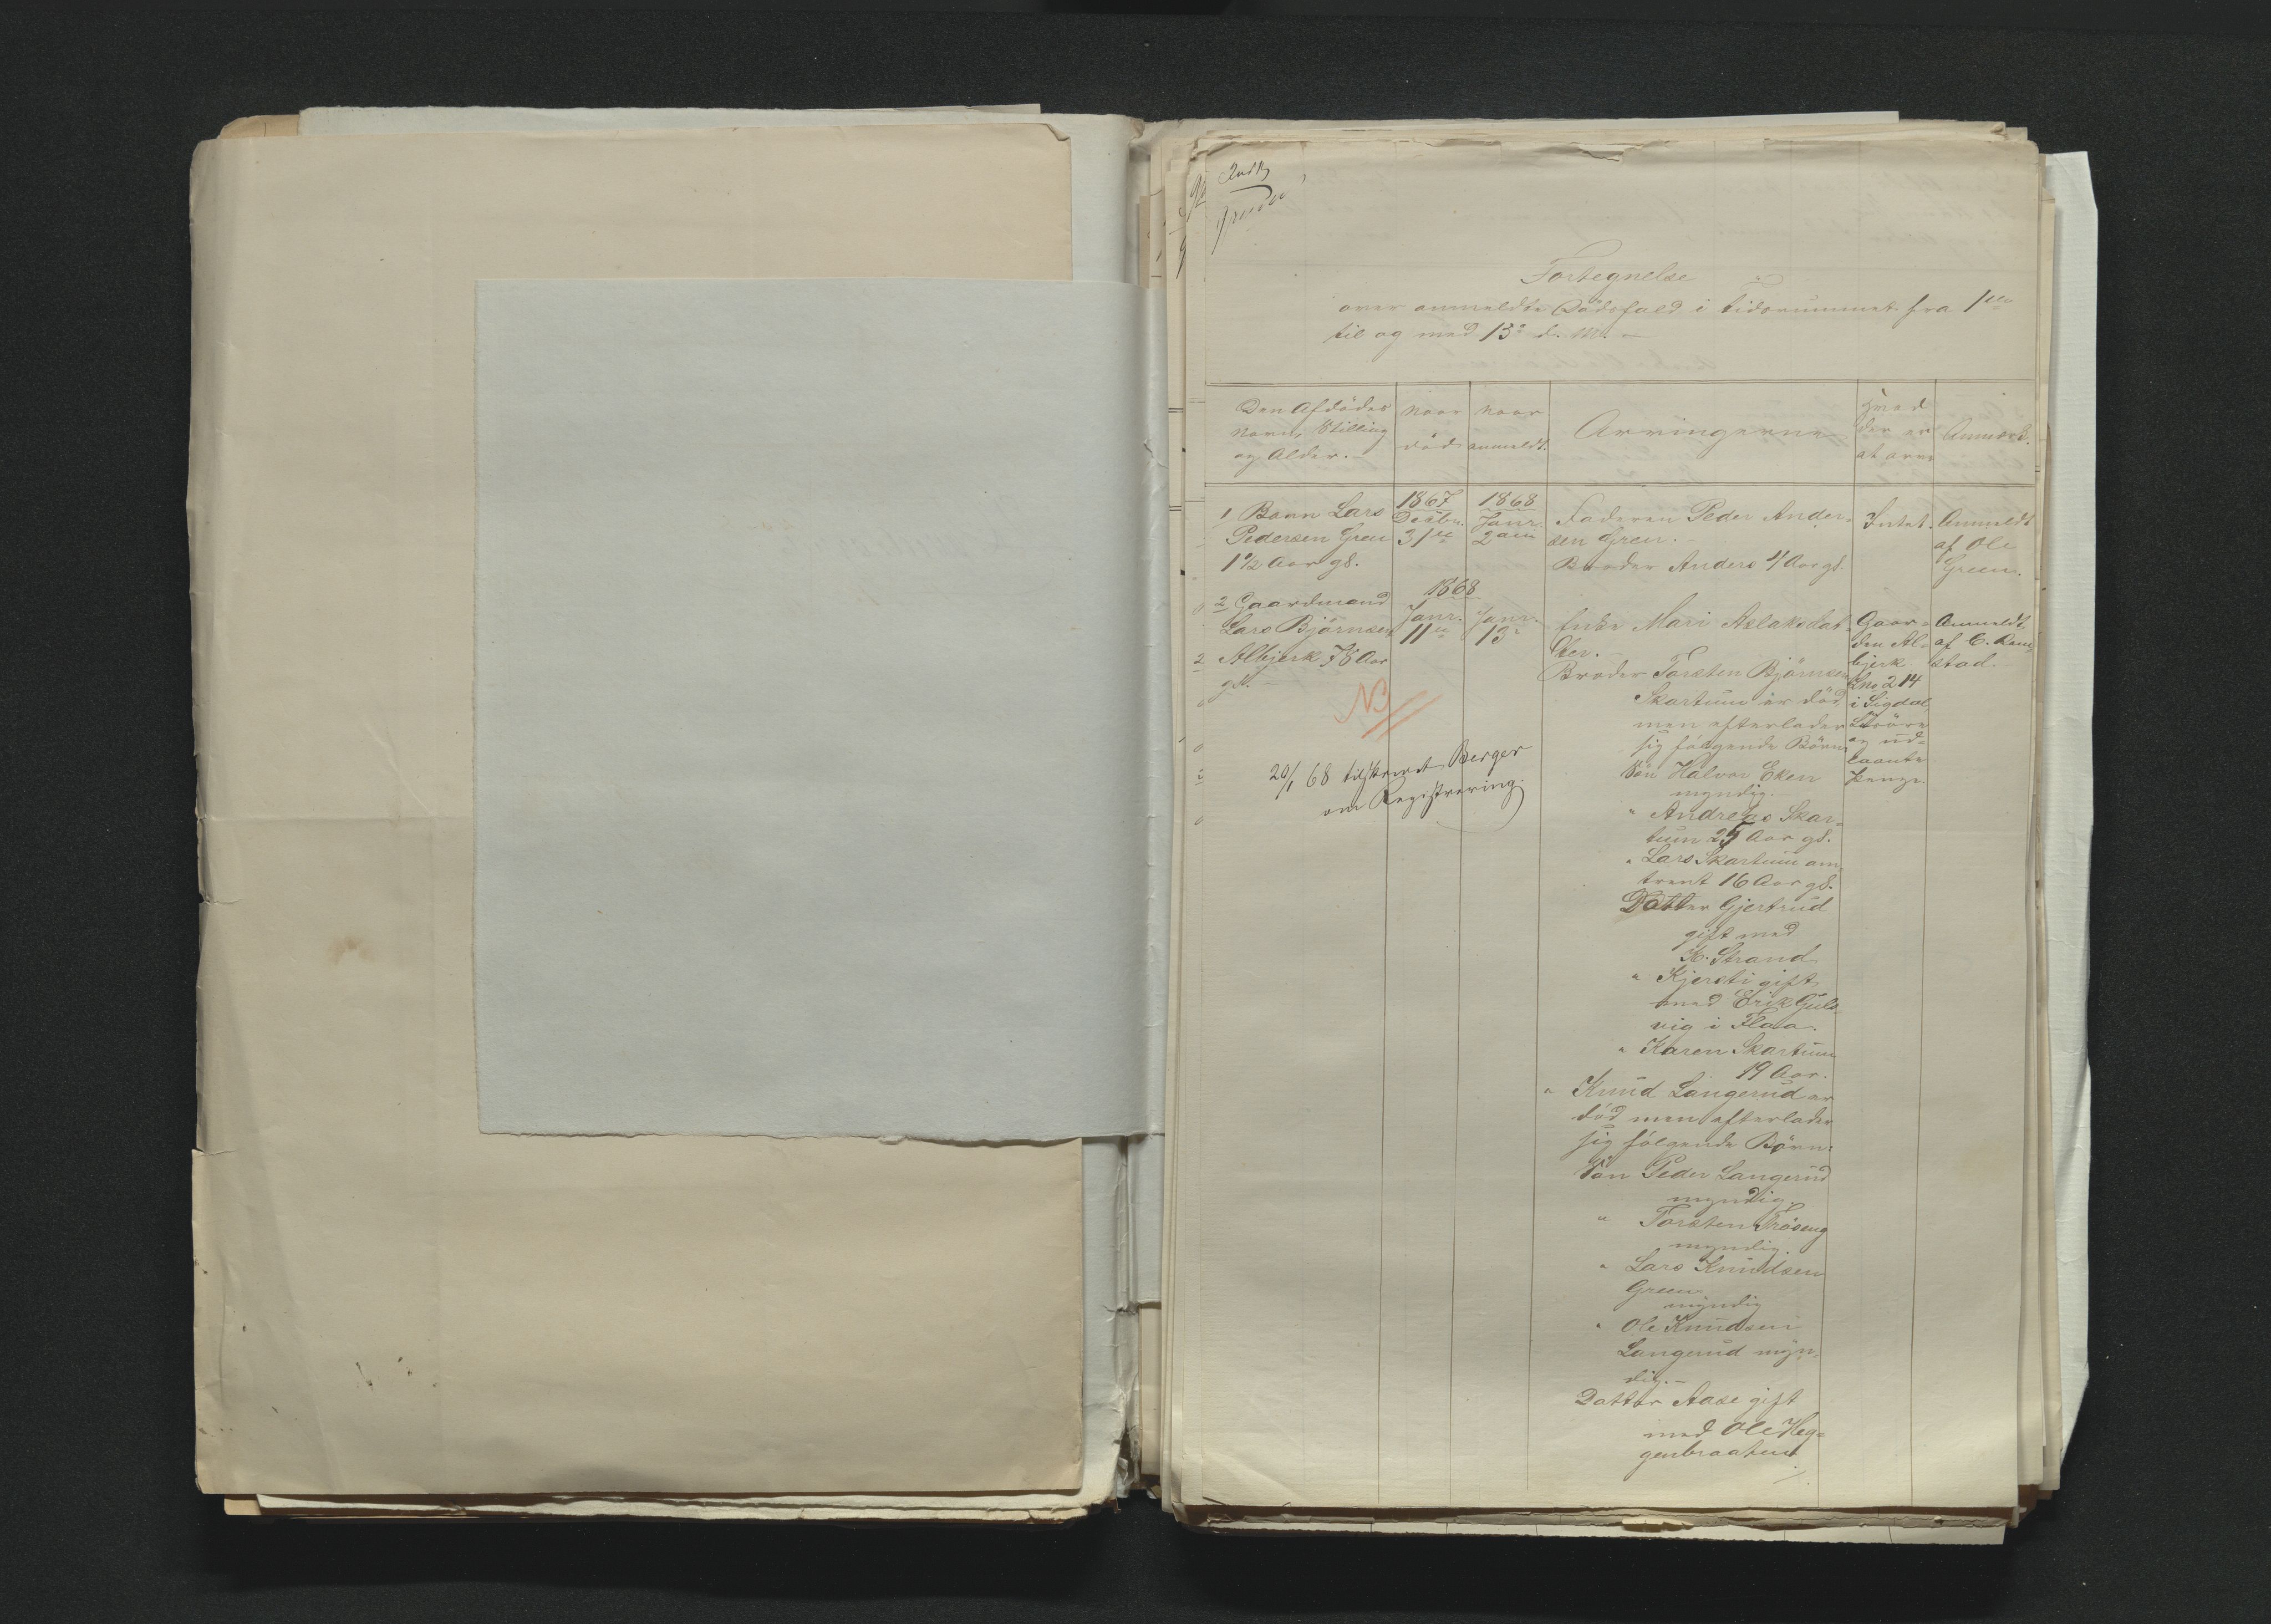 Fortegnelse
over anmeldte Dødsfald i Tidsrummet fra 1ste
til og med 13de d. M. –
Den Afdødes
Navn, Stilling
og Alder. –
Naar
død
Naar
anmeldt.
Arvingerne
Hvad
der er
at arve
Anmærk.
1 Barn Lars
Pedersen Green
1 1/2 Aar gl.
1867
Decbr.
31te
1868
Janr.
2den
Faderen Peder Ander-
sen Green. –
Broder Anders 4 Aar gl.
Intet.
Anmeldt
af Ole
Green.
2 Gaardmand
Lars Bjørnsen
Albjerk 78 Aar
gl. –
1868
Janr.
11te
Janr.
13de
Enke Mari Aslaksdat-
ter. –
Broder Torsten Bjørnsen
Skartum er død,
men efterlader
sig følgende Børn
Søn Halvor Eken
myndig. –
" Andreas Skar-
tum 25 Aar gl.
" Lars Skartum om-
trent 16 Aar gl.
Datter Gjertrud
gift med
K. Strand
" Kjersti gift
med Erik Guls-
vig i Flaa.
" Karen Skartum
19 Aar.
" Knud Langerud er
død men efterlader
sig følgende Børn:
Søn Peder Langerud
myndig.
" Torsten Frøseng
myndig.
" Lars Knudsen
Green
myndig
" Ole Knudsen
Langerud myn-
dig. –
Datter Aase gift
med Ole Heg-
genbraaten.
Gaar-
den Al-
bjerk
Lno 214
i Sigdal,
Løsøre
og ud-
laante
Penge.
Anmeldt
af C. Ram-
stad. –
NB
20/1 68 tilskrevet Berger
om Registrering.